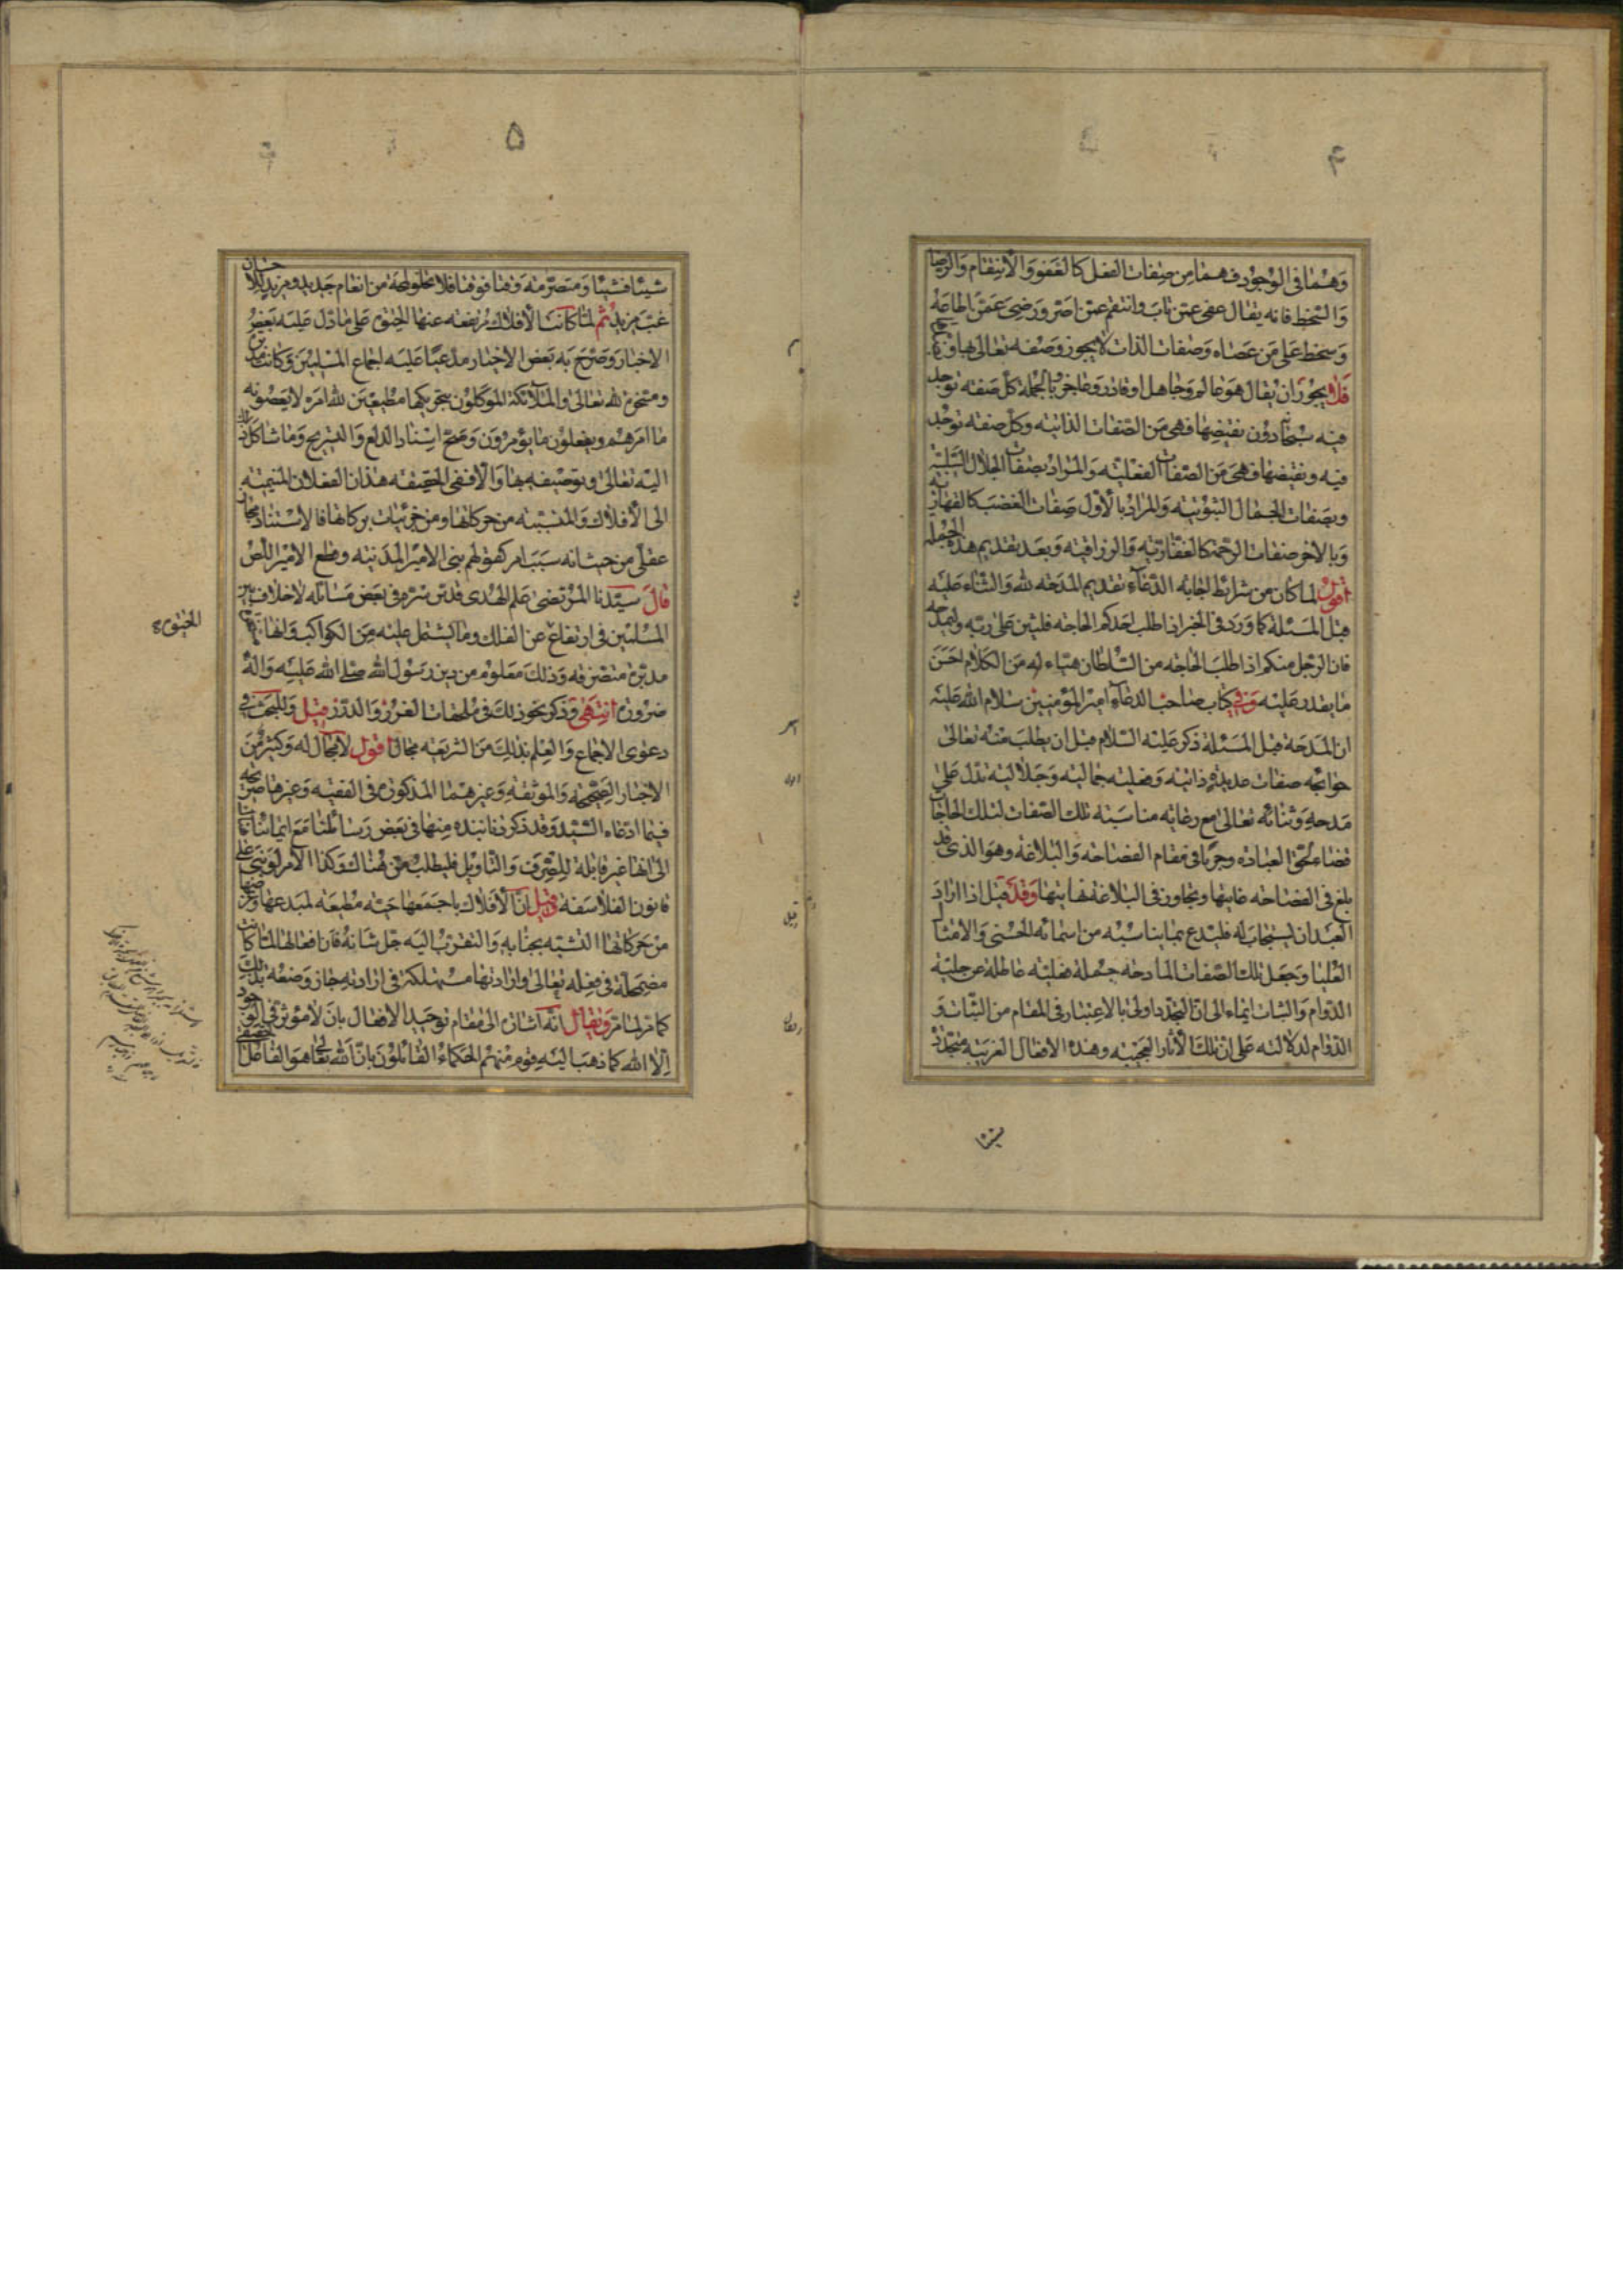 ۴
وهما في الوجود فهما من صفات الفعل كالعفو والانتقام والرضا
والسخط فانه يقال عفى عمن تاب وانتقم عمن اصر ورضى عمن اطاعه
وسخط على من عصاه وصفات الذات لا يجوز وصفه تعالى بها و
فلا يجوز ان يقال هو عالم وجاهل او قادر وعاجز وبالجملة كل صفة توجد
فيه سبحانه دون نقيضها فهي من الصفات الذاتية وكل صفة توجد
فيه ونقيضها فهي من الصفات الفعلية والمراد بصفات الجلال السلبية
وبصفات الجمال الثبوتية والمراد بالاول صفات الغضب كالقهارية
وبالاخر صفات الرحمة كالغفارية والرزاقية وبعد تقديم هذه الجملة
اقول لما كان من شرائط اجابة الدعاء تقديم المدحة لله والثناء عليه
قبل المسئلة كما ورد في الخبر اذا طلب احدكم الحاجة فليثن على ربه وليمدحه
فان الرجل منكم اذا طلب الحاجة من السلطان هياء له من الكلام احسن
ما يقدر عليه وفي كتاب صاحب الدعاء امير المؤمنين سلام الله عليه
ان المدحة قبل المسئلة ذكر عليه السلام قبل ان يطلب منه تعالى
حوائجه صفات عديدة ذاتية وفعلية جمالية وجلالية تدل على
مدحه وثنائه تعالى مع رعاية مناسبة تلك الصفات لتلك الحاجات
قضاء لحق العبادة وجريا في مقام الفصاحة والبلاغة وهو الذي قد
بلغ في الفصاحة غايتها وتجاوز في البلاغة نهايتها وقد قيل اذا اراد
العبد ان يستجاب له فليدع بما يناسبه من اسمائه الحسنى والامثال
العليا وجعل تلك الصفات المادحة جملة فعلية عاطلة عن حلية
الدوام والثبات ايماء الى ان التجدد اولى بالاعتبار في المقام من الثبات و
الدوام لدلالته على ان تلك الاثار العجيبة وهذه الافعال الغريبة متجددة
شيئا
۵
شيئا فشيئا ومتصرمة وقتا فوقتا فلا تخلو لمحة من انعام جديد ومزيد احسان
غب مزيد ثم لما كانت الافلاك مرتفعة عنها الحيوة على ما دل عليه بعض
الاخبار وصرح به بعض الاخيار مدعيا عليه اجماع المسلمين وكانت مدبرة
ومتحركة لله تعالى والملائكة الموكلون بتحريكها مطيعين لله امره لا يعصونه
ما امرهم ويفعلون ما يؤمرون وصح اسناد الدلع والتسريح وما شاكل ذلك
اليه تعالى وتوصيفه بها والا ففي الحقيقة هذان الفعلان المنتميته
الى الافلاك والمنتسبته من حركاتها ومن جزئيات بركاتها فالاستناد مجاز
عقلي من حيث انه سبب امر كقولهم بنى الامير المدينة وقطع الامير اللص
قال سيدنا المرتضى علم الهدى قدس سره في بعض مسائله لا خلاف بين
المسلمين في ارتفاع عن الفلك وما يشتمل عليه من الكواكب وانها
الحيوة
مدبرة متصرفة وذلك معلوم من دين رسول الله صلى الله عليه واله
ضرورة انتهى وذكر نحو ذلك في ملحقات الغرر والدرر قيل وللبحث في
دعوى الاجماع والعلم بذلك من الشريعة مجال اقول لا مجال له وكثير من
الاخبار الصحيحة والموثقة وغيرهما المذكورة في الفقيه وغيرها صريحة
فيما ادعاه السيد وقد ذكرنا نبذه منها في بعض رسائلنا مع ايمائنا
الى انها غير قابلة للصرف والتاويل فليطلب من هناك وكذا الامر لو بنى على
قانون الفلاسفة وقيل ان الافلاك باجمعها حية مطيعة لمبدعها وغرضها
من حركاتها التشبه بجنابه والتقرب اليه جل شانه فان افعالها لما كانت
مضمحلة في فعله تعالى وارادتها مستهلكة في ارادته جاز وصفه بذلك
كما مر لما مر ويقال انه اشارة الى مقام توحيد الافعال بان لا مؤثر في الوجود
الا الله كما ذهب اليه قوم منهم الحكماء القائلون بان الله تعالى هو الفاعل الحقيقي